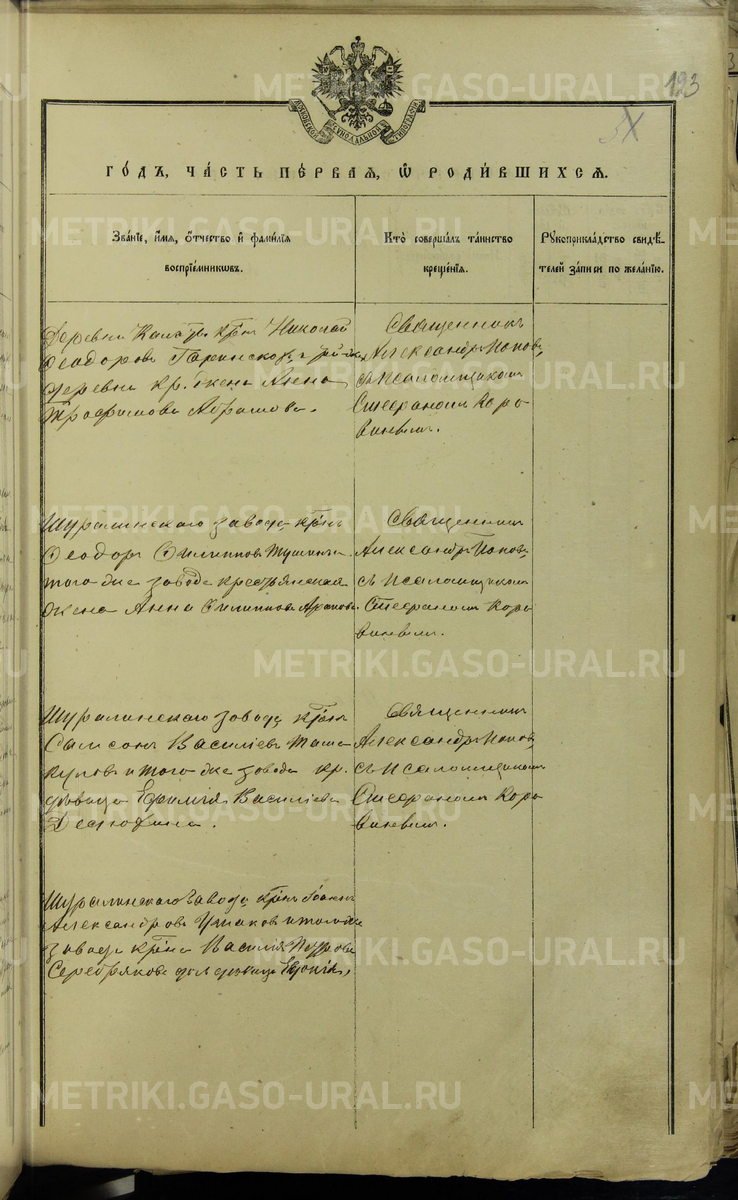 METRIKI.GASO-URAL.RU
123
МОСКОВСКОЙ СѴНОДАЛЬНОЙ ТИПОГРАФІИ
ГОДЪ, ЧАСТЬ ПЕРВАЯ, Ѡ РОДИВШИХСЯ.
Званіе, имя, отчество и фамилія
воспріемниковъ.
Кто совершалъ таинство
крещенія.
Рукоприкладство свидѣ-
телей записи по желанію.
Деревни крнъ Николай
Ѳеодоровъ
деревни кр. жена Анна
Трофимова Абрамова.
Священникъ
Александръ Поповъ
съ псаломщикомъ
Стефаномъ Коро
винымъ.
Шуралинскаго завода крнъ
Ѳеодоръ Филипповъ
того же завода крестьянская
жена Анна Филиппова Арапова.
Священникъ
Александръ Поповъ
съ псаломщикомъ
Стефаномъ Коро
винымъ.
Шуралинскаго завода крнъ
Сампсонъ Василіевъ Таша
куловъ и того же завода кр.
дѣвица Василіева
Священникъ
Александръ Поповъ
съ псаломщикомъ
Стефаномъ Коро
винымъ.
Шуралинскаго завода крнъ Іоаннъ
Александровъ и того же
завода крна Василія Петрова
Серебрякова дочь дѣвица
METRIKI.GASO-URAL.RU